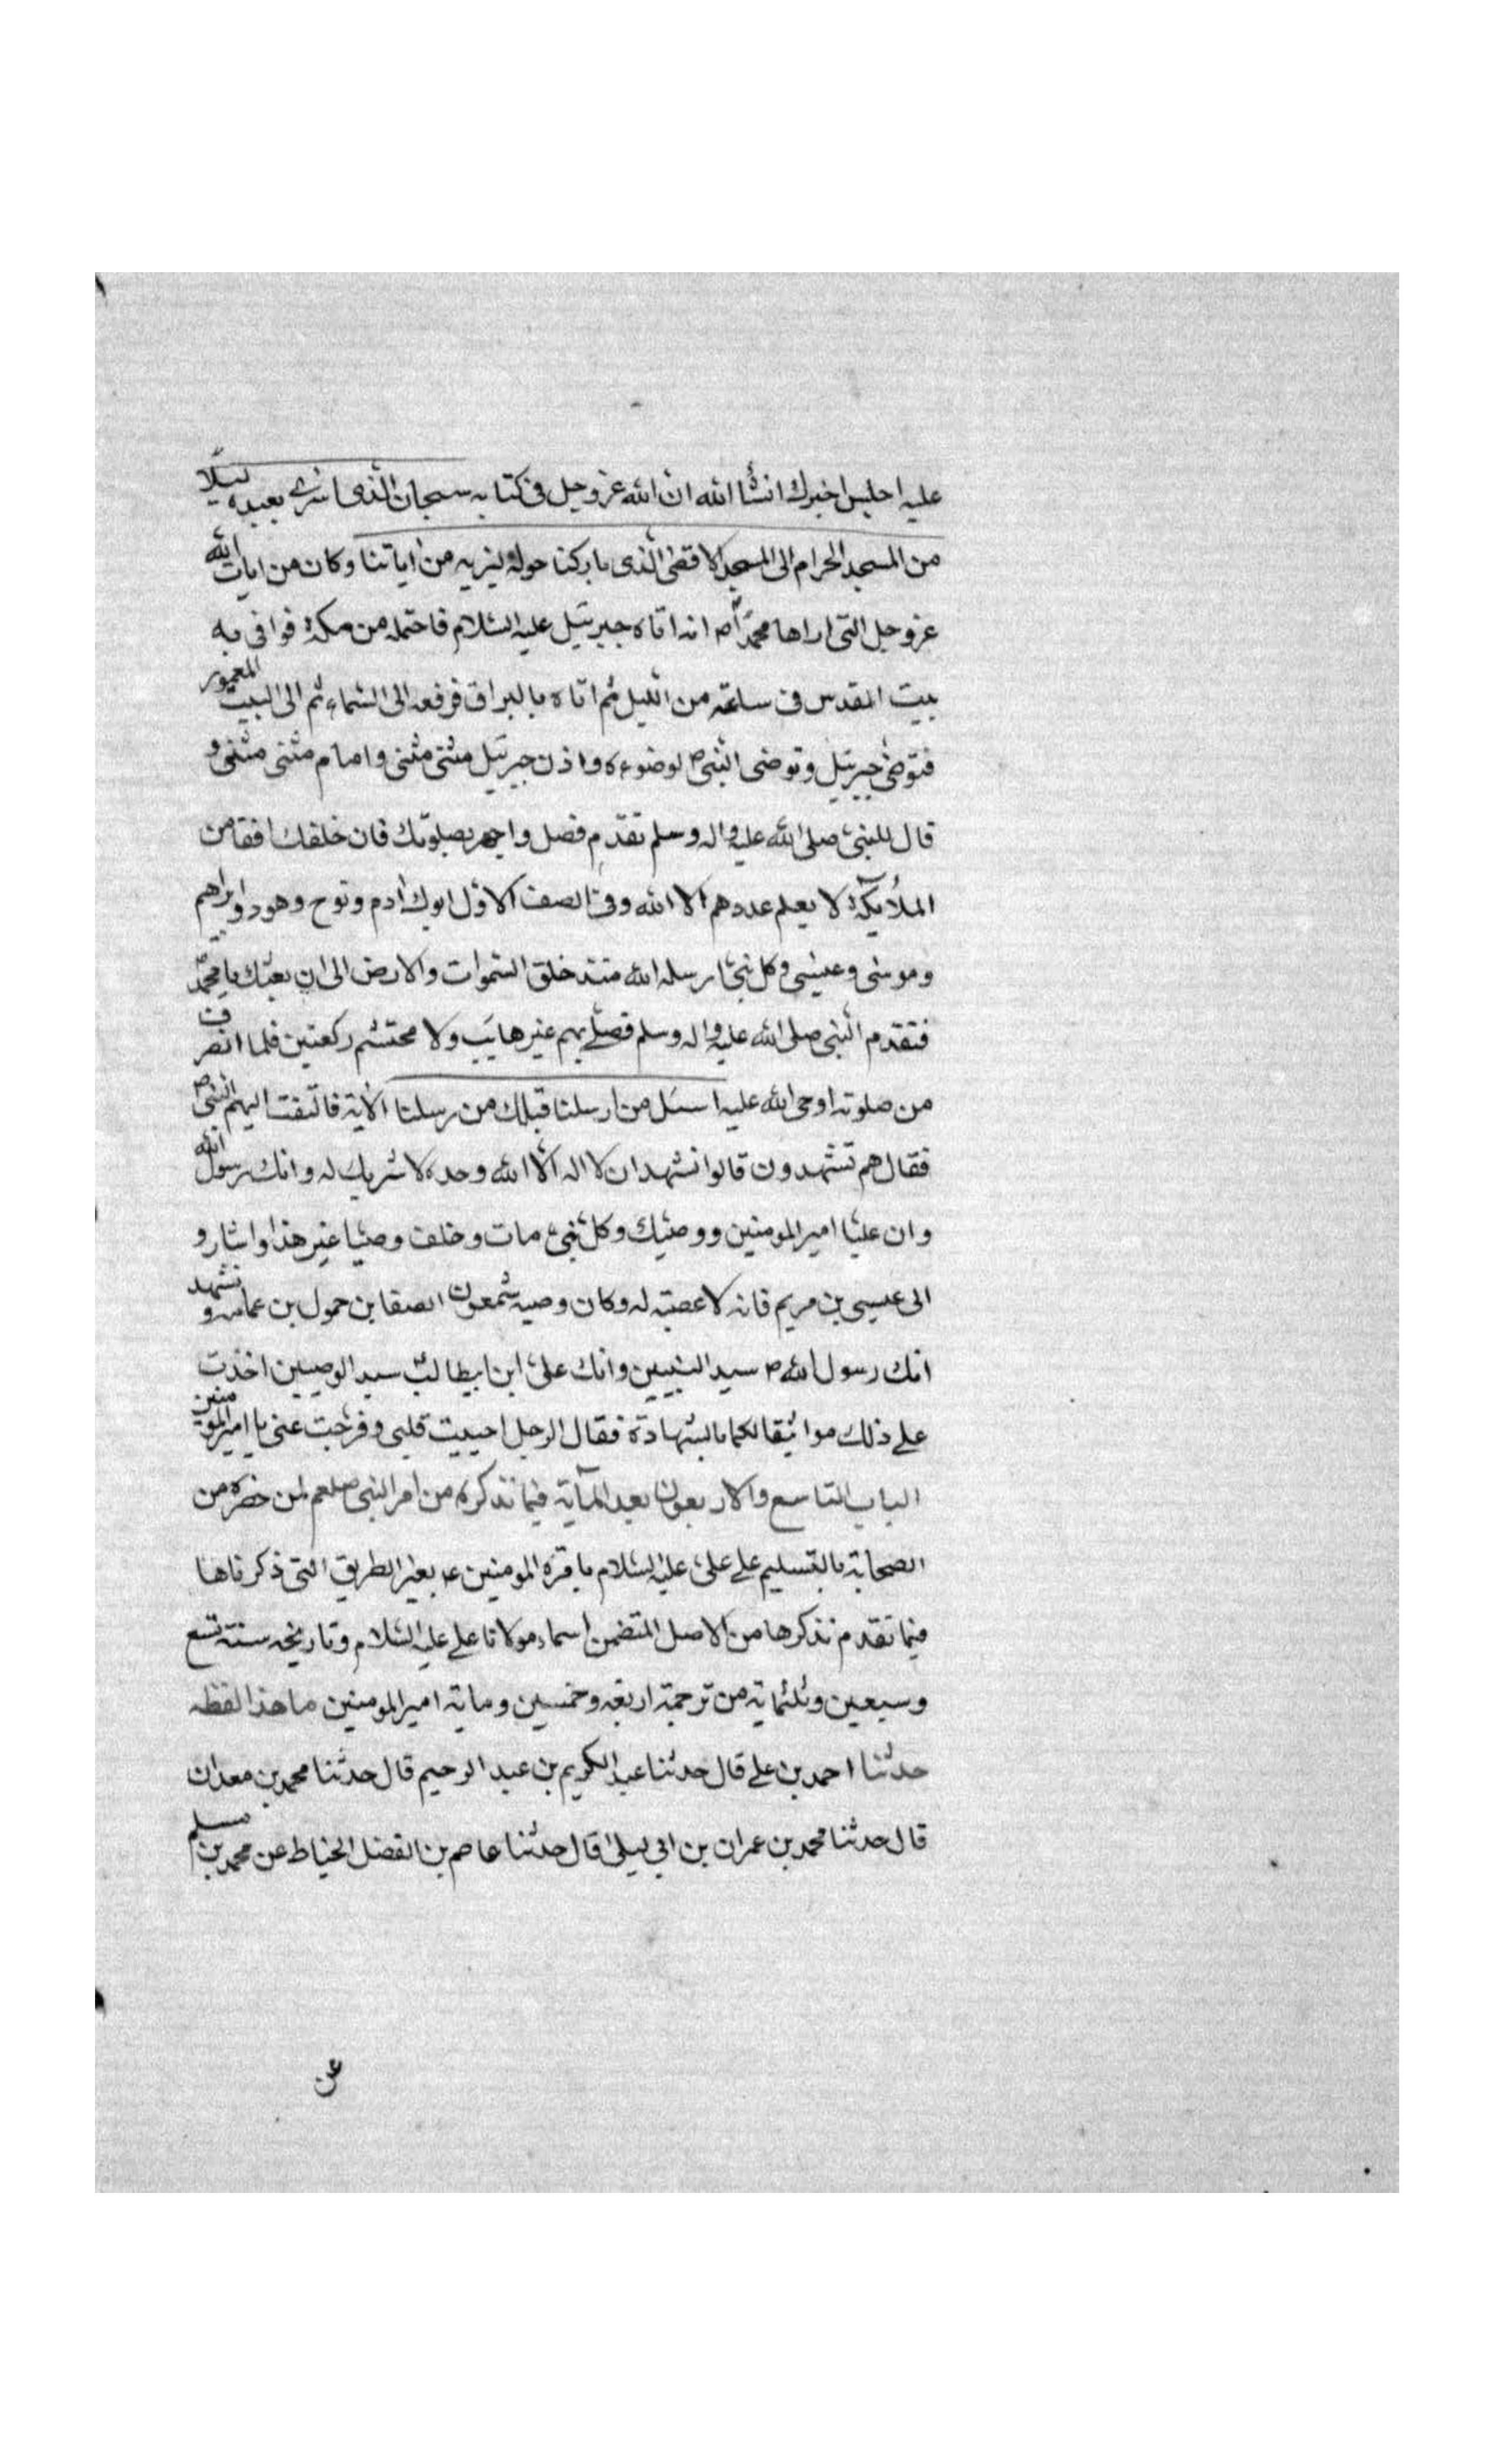 عليه اجلس اخبرك انشأ الله ان الله عز وجل فى كتابه سبحان الّذى اسرى بعبده ليلًا
من المسجد الحرام الى المسجد الاقصى الّذى باركنا حوله لنريه من اياتنا وكان من ايات الله
عز وجل التى اراها محمّدًا ص انه اتاه جبرئيل عليه السّلام فاحتمله من مكة فوافى به
بيت المقدس فى ساعة من اللّيل ثم اتاه بالبراق فرفعه الى السّماء ثم الى البيت المعمور
فتوضى جبرئيل وتوضى النّبى ص لوضوءه واذن جبرئيل مثنى مثنى واقام مثنى مثنى و
قال للنبى صلى الله عليه واله وسلم تقدّم فصل واجهر بصلوتك فان خلفك افقا من
الملائكة لا يعلم عددهم الا الله وفى الصف الاوّل ابوك ادم ونوح وهود وابراهيم
وموسى وعيسى وكل نبى ارسله الله منذ خلق السّموات والارض الى ان بعثك يا محمّد
فتقدم النّبى صلى الله عليه واله وسلم فصلّى بهم غير هايب ولا محتشم ركعتين فلما انصرف
من صلوته اوحى الله عليه اسئل من ارسلنا قبلك من رسلنا الاية فالتفت اليهم النّبى ص
فقال هم تشهدون قالوا نشهد ان لا اله الّا الله وحده لا شريك له وانك رسول الله
وان عليّا امير المومنين ووصيّك وكل نبى مات وخلف وصيّا غير هذا واشار و
الى عيسى بن مريم فانه لا عصبة له وكان وصيه شمعون الصفا بن حمول بن عمامه ونشهد
انك رسول الله ص سيد النبيين وانك علىّ ابن ابيطالب سيد الوصيين اخذت
على ذلك مواثيقا لكما بالشهادة فقال الرجل احييت قلبى وفرّجت عنى يا امير المومنين
الباب التاسع والاربعون بعد المآية فيما نذكره من امر النبى صلعم لمن حضره من
الصحابة بالتسليم على علىّ عليه السّلام بامرة المومنين بغير الطريق التى ذكرناها
فيما تقدم نذكرها من الاصل المتضمن اسماء مولانا على عليه السّلام وتاريخه سنة تسع
وسبعين وثلثماية من ترجمة اربعة وخمسين وماية امير المومنين ما هذا لفظه
حدثنا احمد بن على قال حدثنا عبد الكريم بن عبد الرحيم قال حدثنا محمد بن معدان
قال حدثنا محمد بن عمران بن ابى ليلى قال حدثنا عاصم بن الفضل الخياط عن محمد بن مسلم
عن